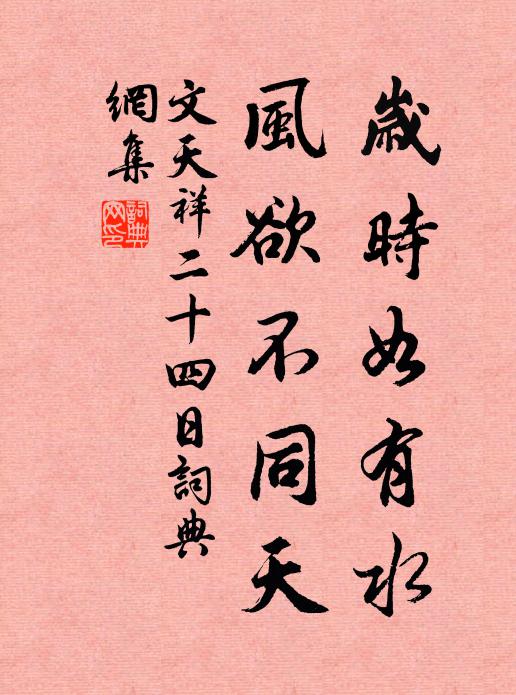 歲時如有水
風欲不同天
文天祥二十四日詞典
網集
詞典
网印